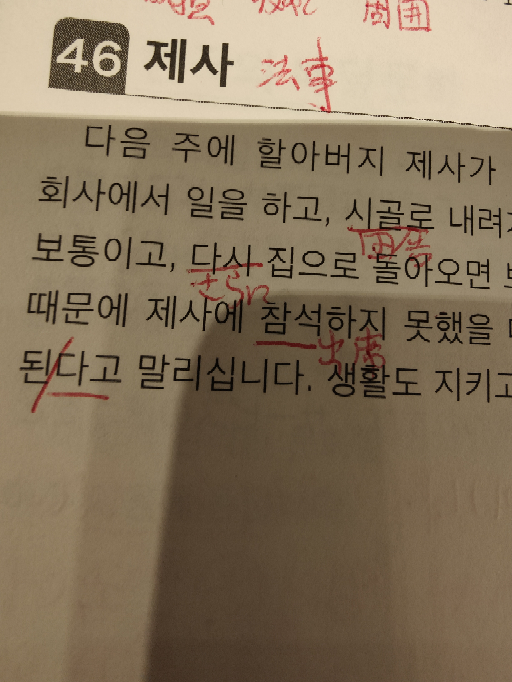 周囲
46 제사 法事
다음 주에 할아버지 제사가
회사에서 일을 하고, 시골로 내려
田舎
보통이고, 다시 집으로 돌아오면
さらに
때문에 제사에 참석하지 못했을
出席
된다고 말리십니다. 생활도 지키고